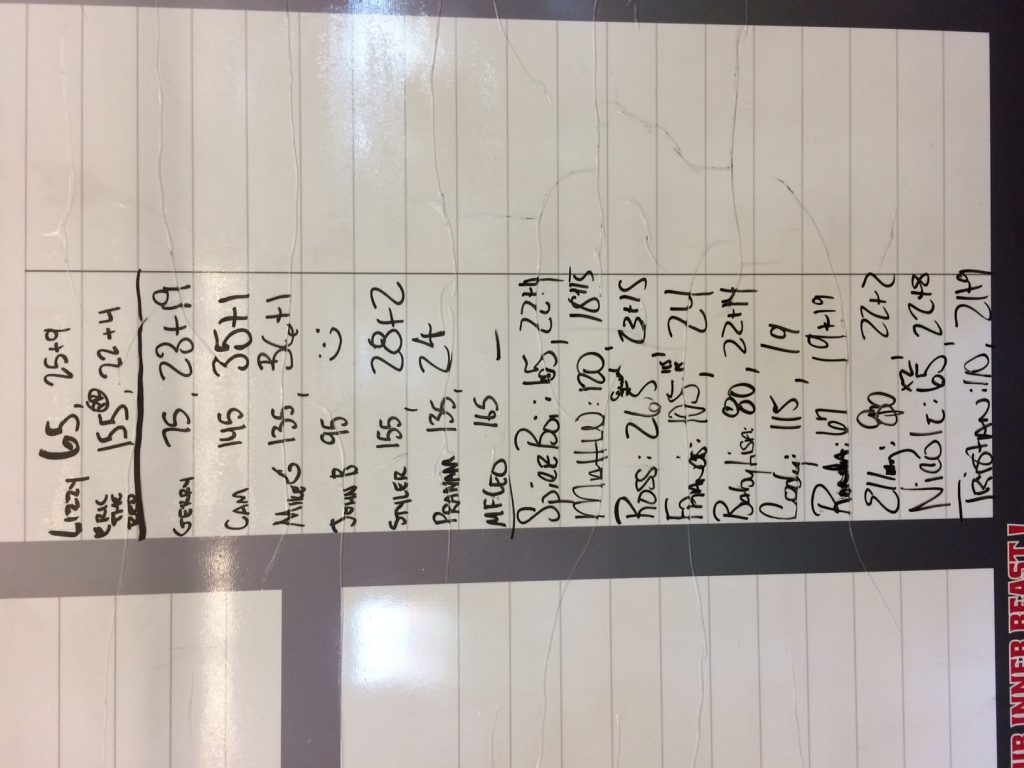 Lizzy 65, 25+9
ERIC THE RED 155, 22+4
GERRY 75, 23+9
CAM 145 35+1
Mike G 135, +1
JOHN B 95 :)
STYLER 155, 28+2
135, 24
MFCEO 165 —
Spice Boi: 65, 22+11
Matt W: 120, 18+15
Ross: 265, 23+15
Francis: 105, 24
BabyLisa: 80, 22+14
Cody: 115, 19
67, 19+19
Elley: 80, 22+2
Nicole: 65, x2 22+8
TRISTAN: 110, 21+9
UR INNER BEAST!